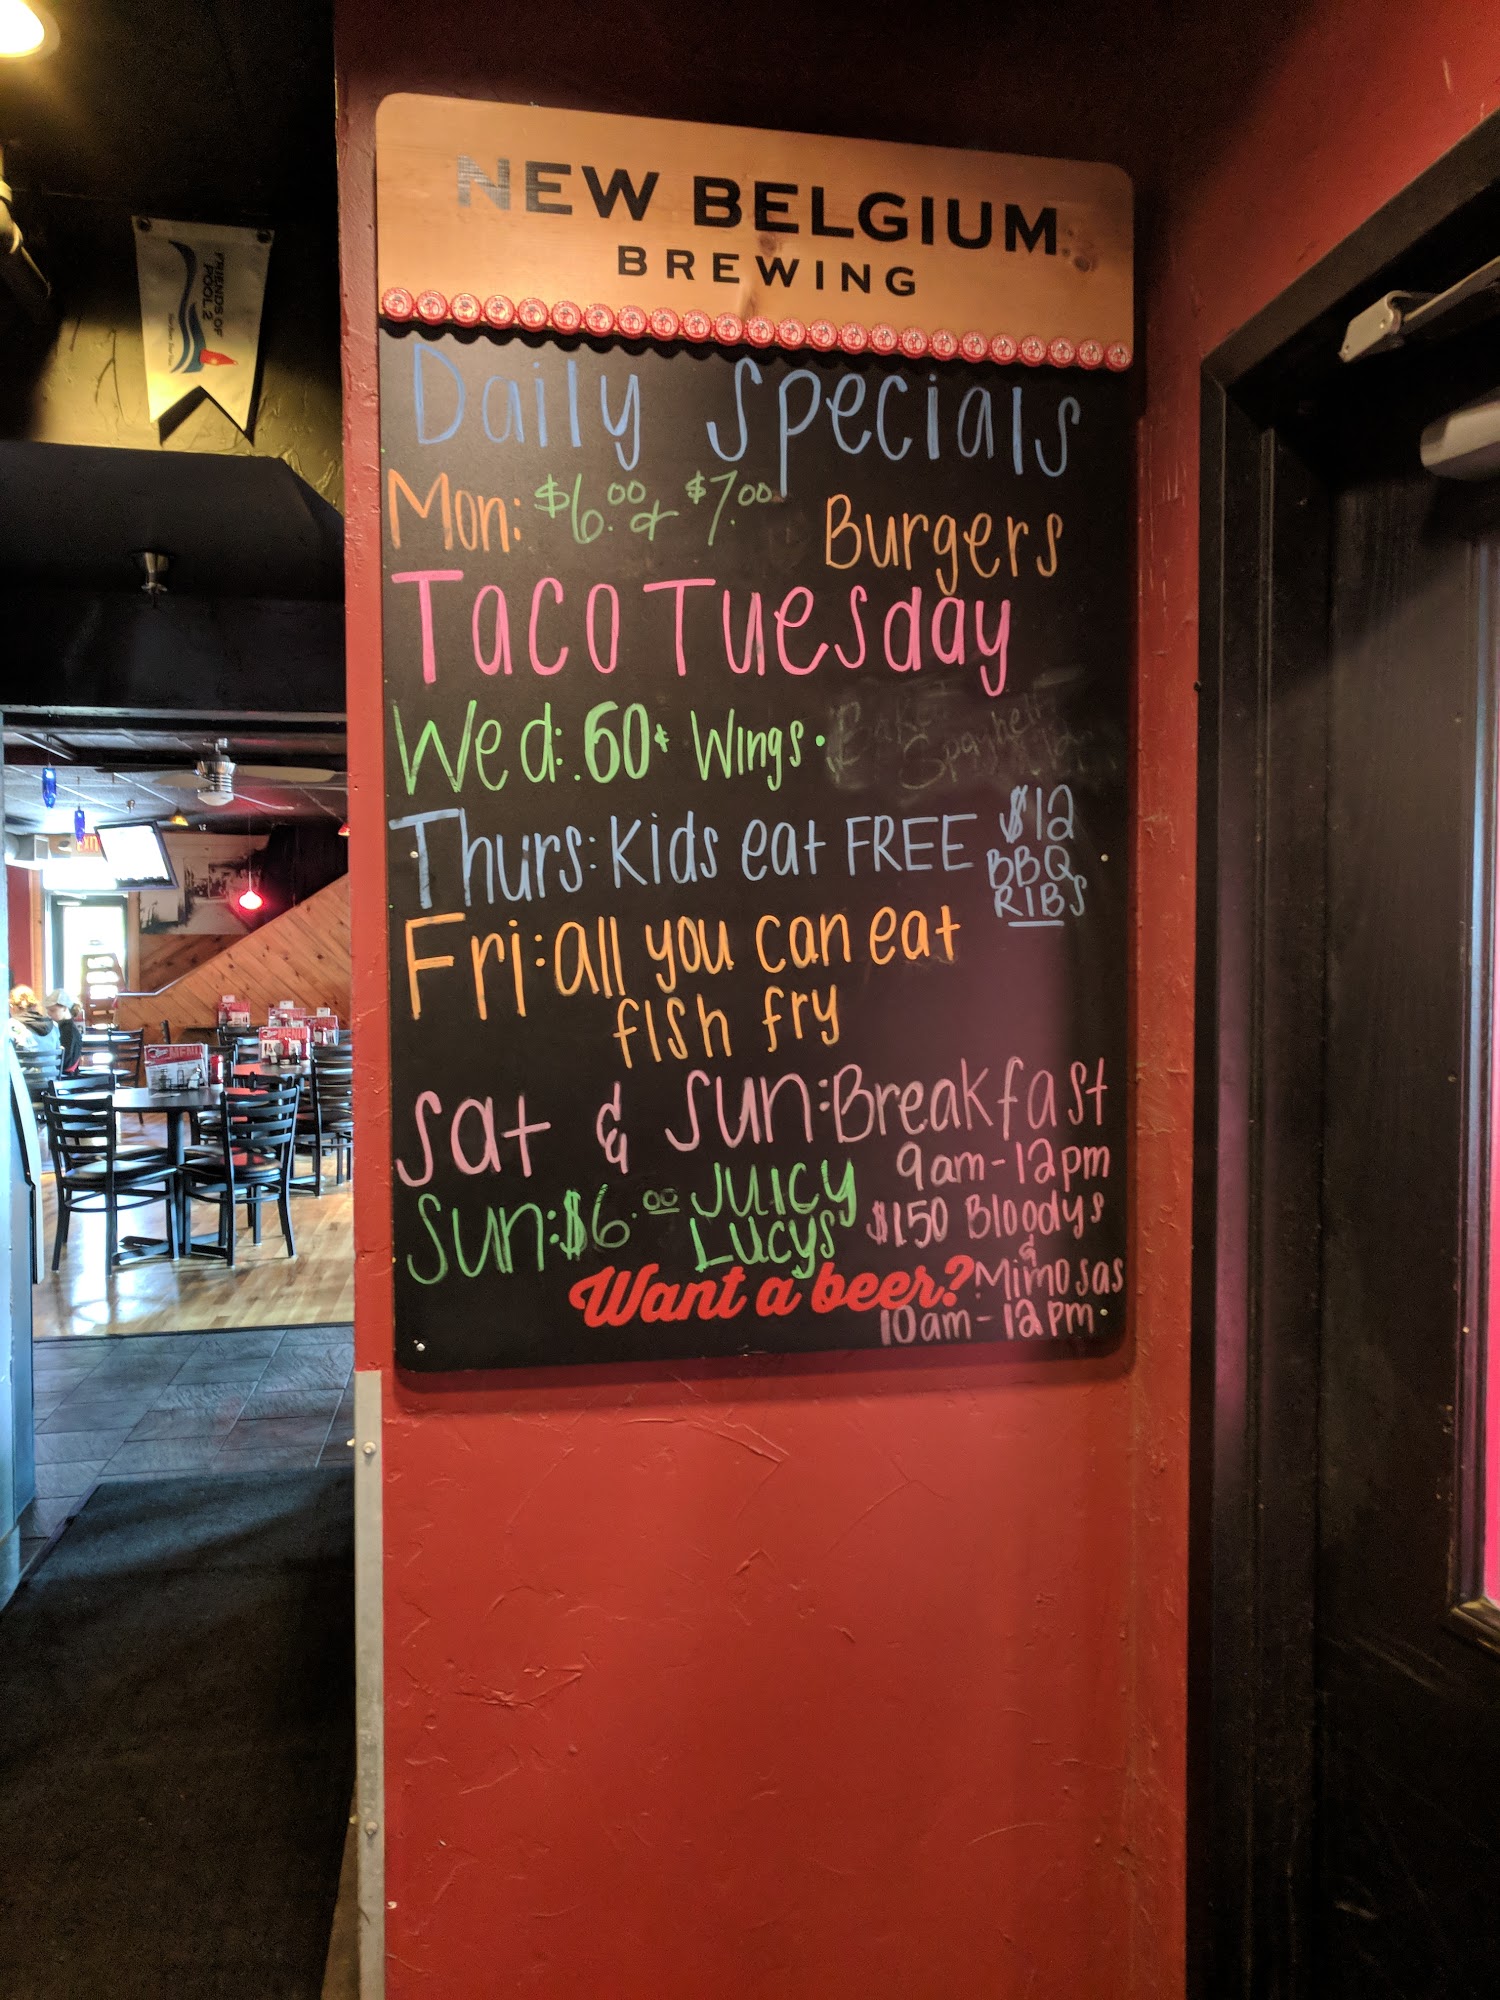 NEW BELGIUM
BREWING
Daily Specials
Mon: $6.00 & $7.00 Burgers
Taco Tuesday
Wed: .60¢ Wings.
Spaghetti
Thurs: Kids eat FREE
$12
BBQ
RIBS
Fri: all you can eat
fish fry
Sat & Sun: Breakfast
9am-12pm
Sun: $6.00 JUICY
LUCYS
$1.50 Bloodys
&
Mimosas
10am-12pm.
Want a beer?
FRIENDS OF
POOL 2
MENU
MENU
EXIT